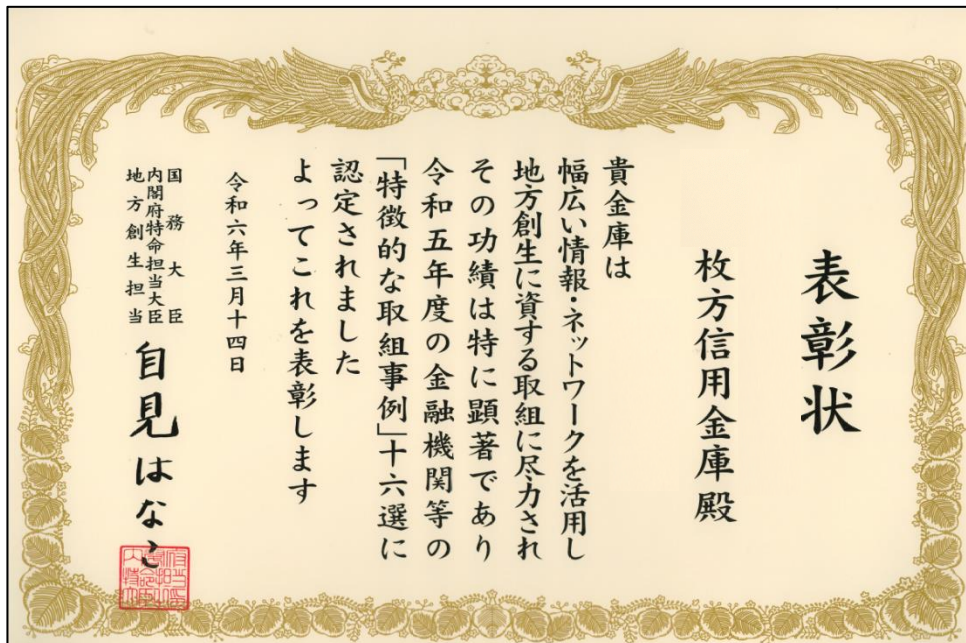 表彰状
枚方信用金庫殿
貴金庫は
幅広い情報・ネットワークを活用し
地方創生に資する取組に尽力され
その功績は特に顕著であり
令和五年度の金融機関等の
「特徴的な取組事例」十六選に
認定されました
よってこれを表彰します
令和六年三月十四日
国務大臣
内閣府特命担当大臣
地方創生担当
自見はなこ